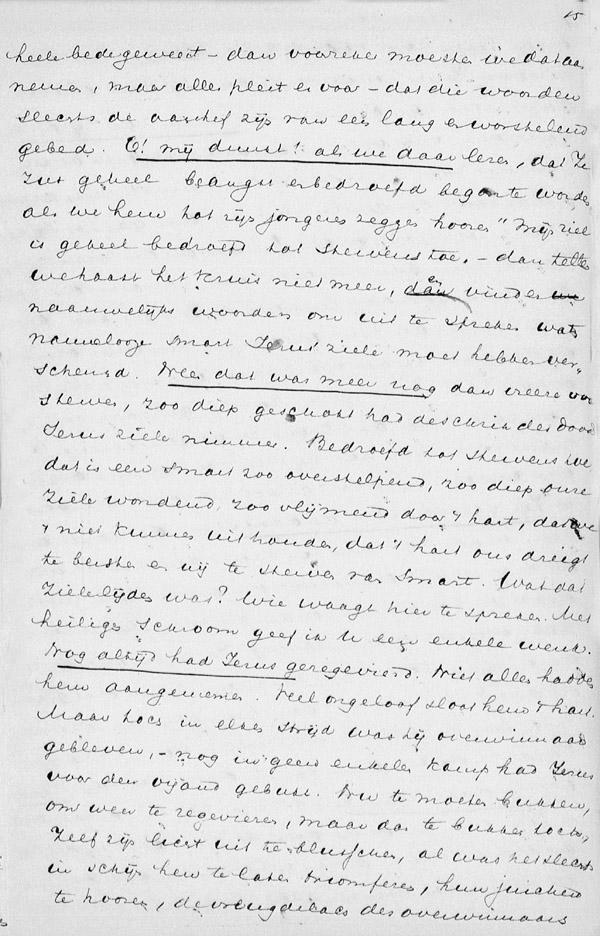 15
heele bede geweest – dan voorzeker moesten we dat aan
nemen, maar alles pleit er voor – dat die woorden
slechts de aanhef zijn van een lang en worstelend
gebed. O! mij dunkt! als we daar lezen, dat Hij
zeer geheel beangst en bedroefd begon te worden
als we hem tot zijn jongeren zeggen hooren "Mijn ziel
is geheel bedroefd tot stervens toe. – dan tellen
we haast het kruis niet meer, en vinden
naauwelijks woorden om uit te spreken wat
namelooze smart Jezus ziele moet hebben ver-
scheurd. Nee dat was meer nog dan vreeze voor
sterven, zoo diep geschokt had de schrik des doods
Jezus ziele nimmer. Bedroefd tot stervens toe
dat is een smart zoo overstelpend, zoo diep onze
ziele wondend, zoo vlijmend door 't hart, dat we
't niet kunnen uithouden, dat 't hart ons dreigt
te bersten en wij te sterven van smart. Wat dat
zielelijden was? Wie waagt hier te spreken. Met
heilige schroom geef ik U een enkele wenk.
Nog altijd had Jezus geregeerd. Niet alles hadden
hem aangenomen. Veel ongeloof sloot hem 't hart.
Maar toch in elken strijd was hij overwinnaar
gebleven, – nog in geen enkele kamp had Jezus
voor den vijand gebukt. Nu te moeten bukken,
om weer te zegevieren, maar dan te bukken toch,
zelf zijn licht uit te blusschen, al was het slechts
in schijn hen te laten triomferen, hun juichen
te hooren, de vreugde des overwinnaars